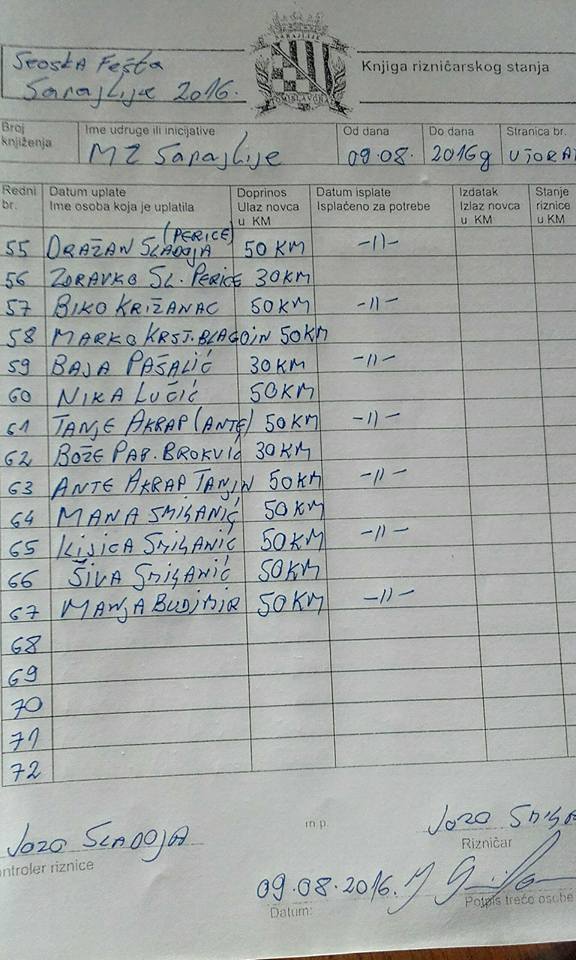 SEOSKA FEŠTA
Sarajlije 2016.
SARAJLIJE
TOMISLAVGRAD
Knjiga rizničarskog stanja
Broj knjiženja
Ime udruge ili inicijative
MZ Sarajlije
Od dana
09.08.
Do dana
2016g
Stranica br.
UTORA
Redni br.
Datum uplate
Ime osoba koja je uplatila
Doprinos
Ulaz novca
u KM
Datum isplate
Isplaćeno za potrebe
Izdatak
Izlaz novca
u KM
Stanje
riznice
u KM
55 DRAŽAN SLADOJA (PERICE) 50 KM -11-
56 ZDRAVKO SL. PERICE 30KM
57 BIKO KRIŽANAC 50KM -11-
58 MARKO KRST. BLAGOJN 50KM
59 BAJA PAŠALIĆ 30KM -11-
60 NIKA LUČIĆ 50KM
61 TANJE AKRAP (ANTE) 50KM -11-
62 BOŽE PAP. BROKVIĆ 30KM
63 ANTE AKRAP TANJIN 50KM -11-
64 MANA SMILJANIĆ 50KM
65 SMILJANIĆ 50KM -11-
66 ŠIVA SMILJANIĆ 50KM
67 MANJA BUDIMIR 50KM -11-
68
69
70
71
72
JOZO SLADOJA
ntroler riznice
m.p.
JOZO
Rizničar
09.08.2016.
Datum:
Potpis treće osobe